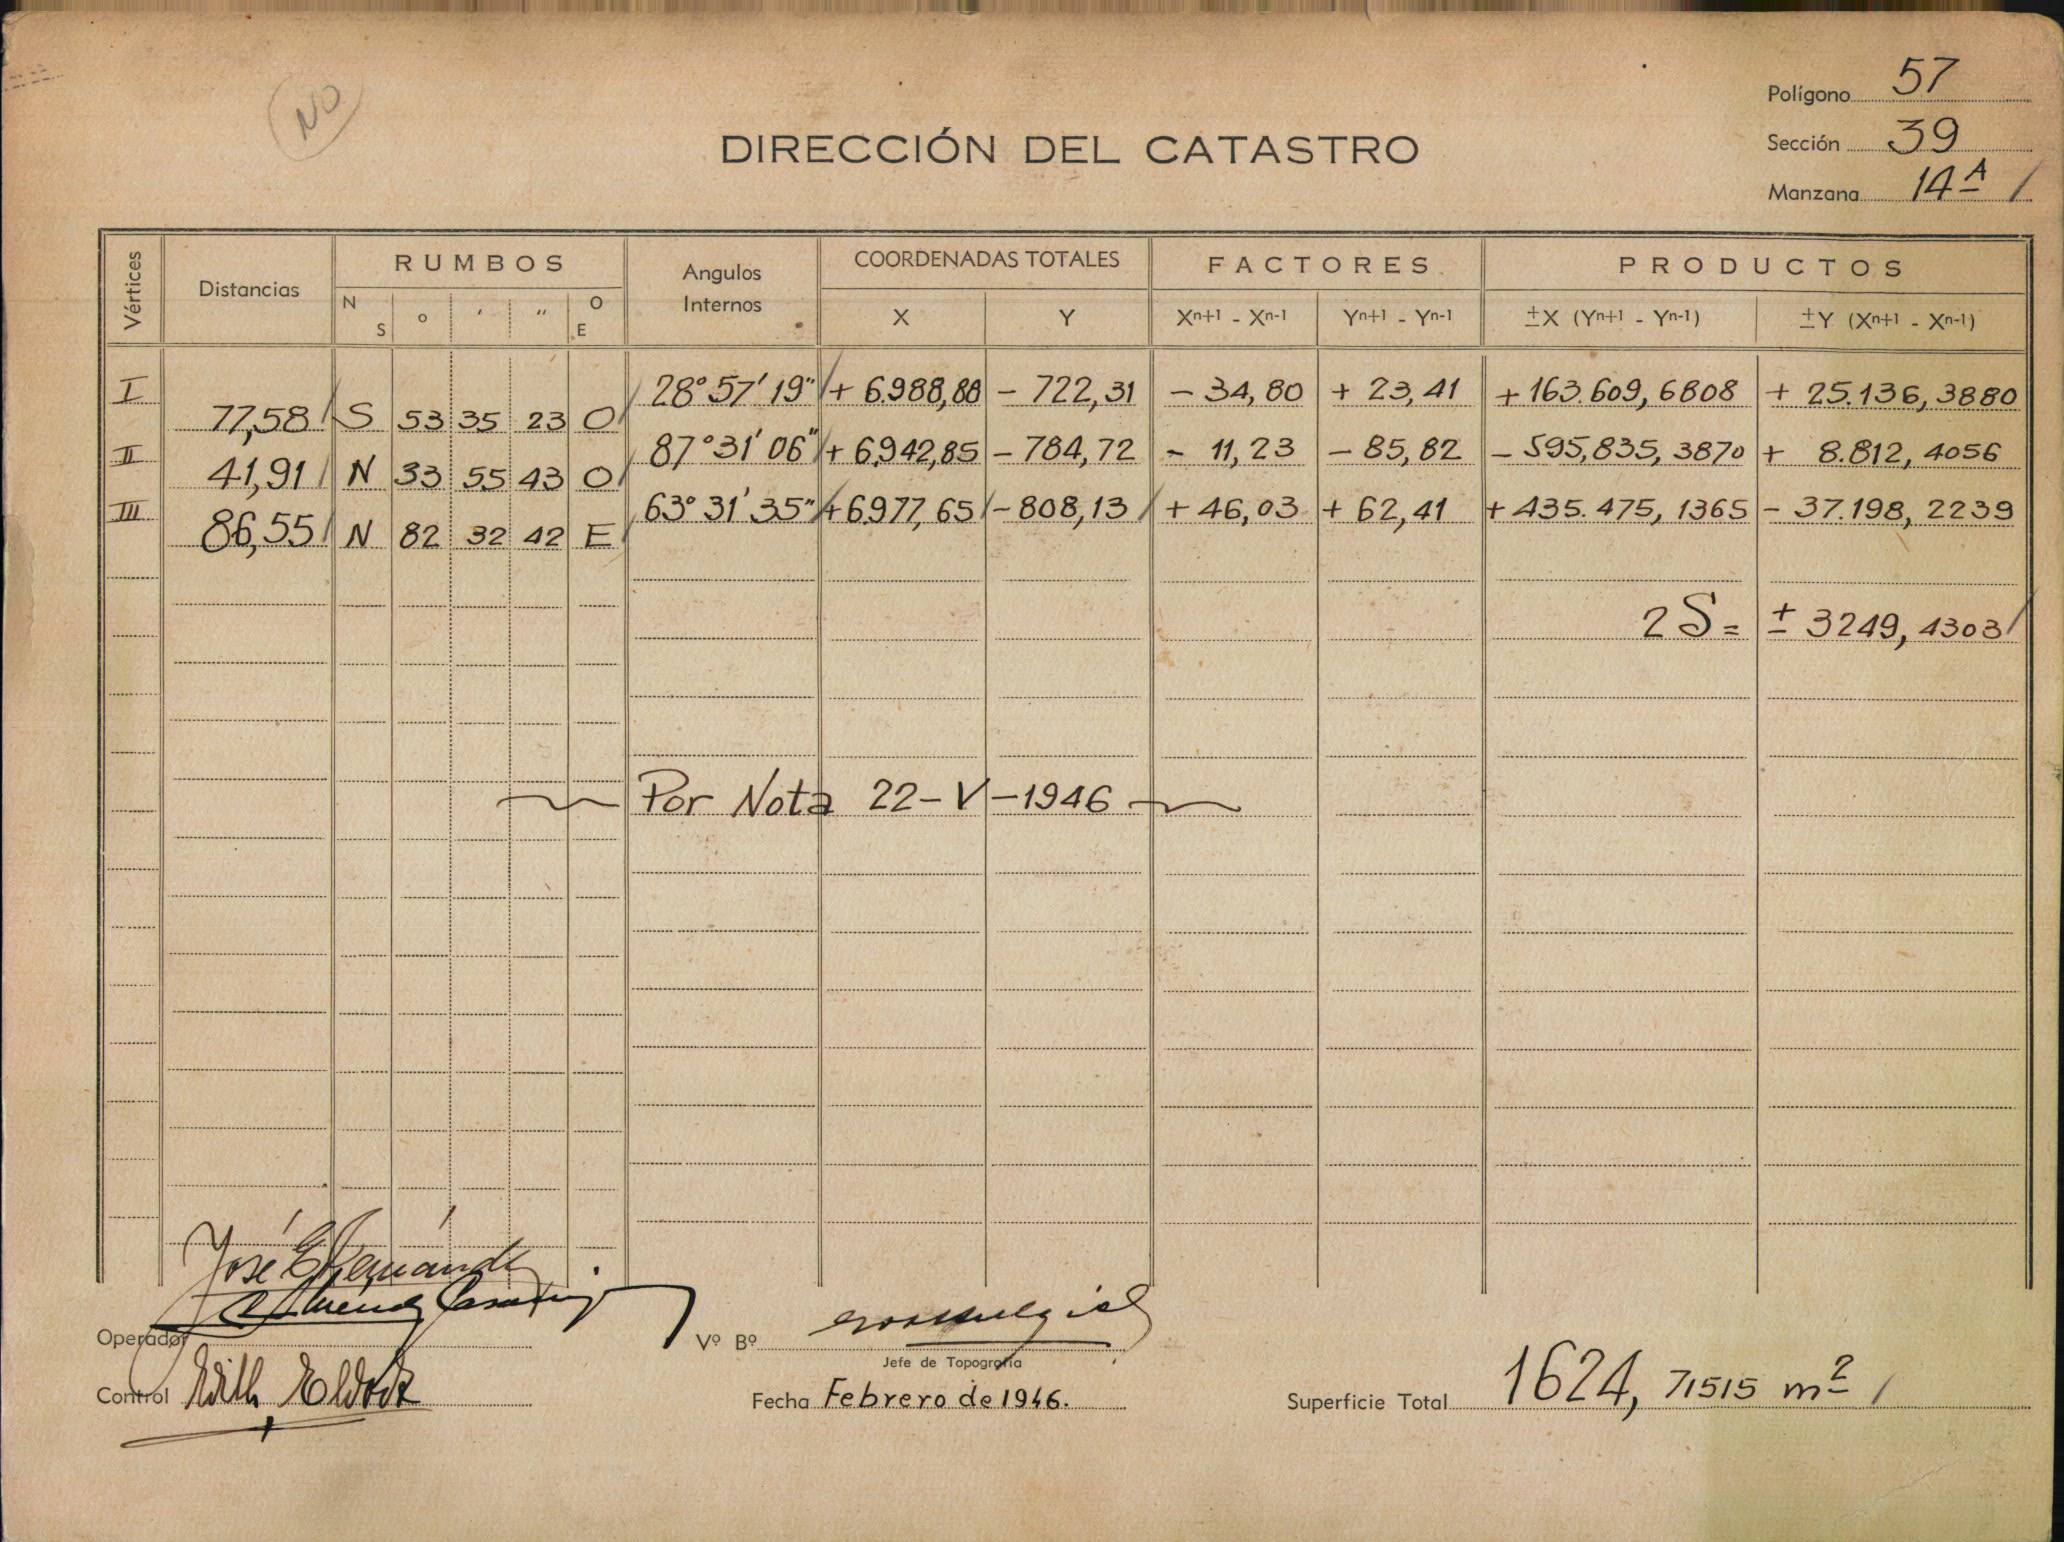 NO
Polígono 57
DIRECCIÓN DEL CATASTRO
Sección 39
Manzana 14 A /
Vértices Distancias RUMBOS Angulos Internos COORDENADAS TOTALES FACTORES PRODUCTOS
N S o ′ ″ O E X Y Xn+1 - Xn-1 Yn+1 - Yn-1 ±X (Yn+1 - Yn-1) ±Y (Xn+1 - Xn-1)
I 28° 57' 19" + 6.988,88 - 722,31 - 34,80 + 23,41 + 163.609,6808 + 25.136,3880
77,58 S 53 35 23 O
II 87° 31' 06" + 6.942,85 - 784,72 - 11,23 - 85,82 - 595,835,3870 + 8.812,4056
41,91 N 33 55 43 O
III 63° 31' 35" + 6.977,65 - 808,13 + 46,03 + 62,41 + 435.475,1365 - 37.198,2239
86,55 N 82 32 42 E
2 S = ± 3249,4303
Por Nota 22 - V - 1946
José E. Hernández
Operador
Vº Bº
Jefe de Topografía
Control Edith
Fecha Febrero de 1946.
Superficie Total 1624,71515 m2 /